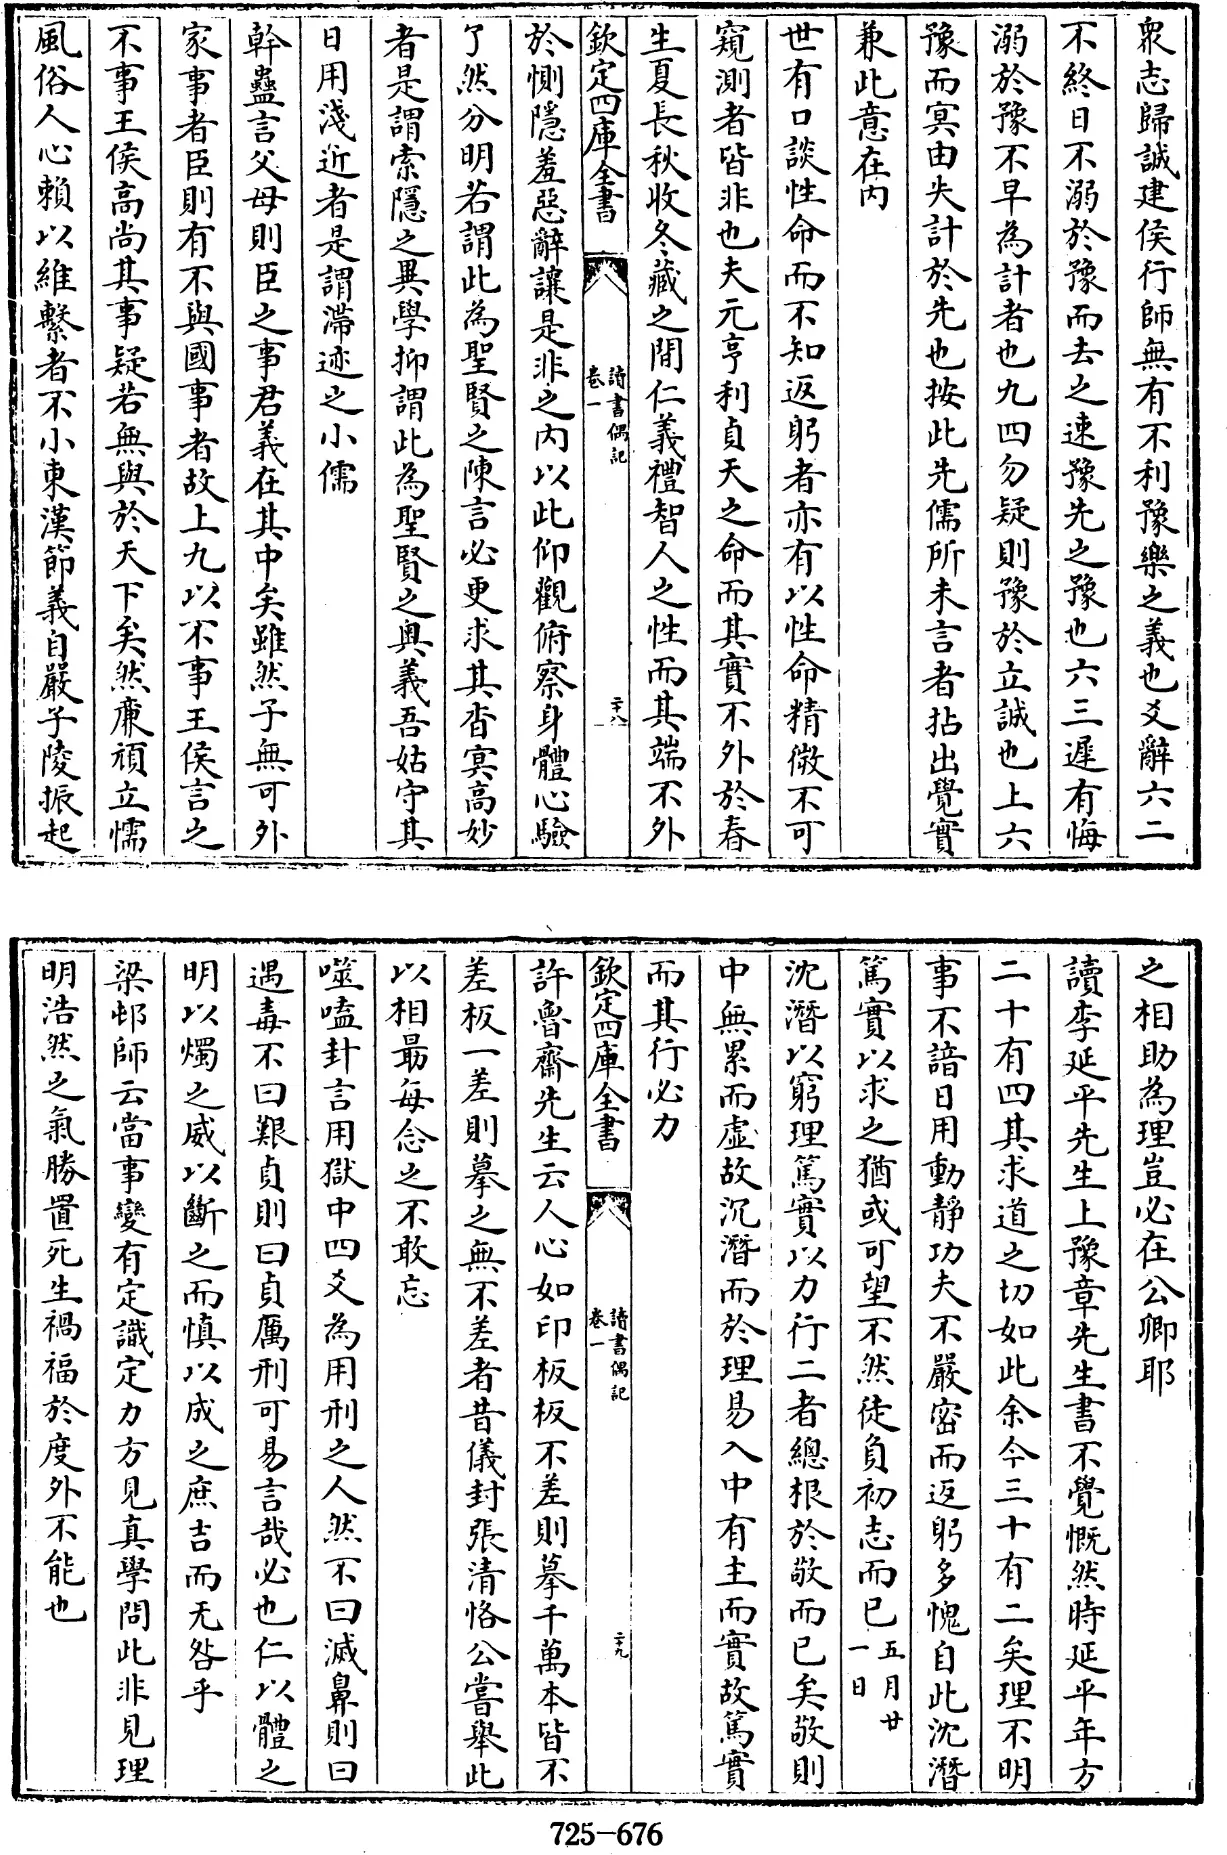 衆志歸誠建侯行師無有不利豫樂之義也爻辭六二
不終日不溺於豫而去之速豫先之豫也六三遲有悔
溺於豫不早為計者也九四勿疑則豫於立誠也上六
豫而冥由失計於先也按此先儒所未言者拈出覺實
兼此意在內
世有口談性命而不知返躬者亦有以性命精微不可
窺測者皆非也夫元亨利貞天之命而其實不外於春
生夏長秋收冬藏之間仁義禮智人之性而其端不外
欽定四庫全書
讀書偶記
卷一
二十八
於惻隱羞惡辭讓是非之內以此仰觀俯察身體心驗
了然分明若謂此為聖賢之陳言必更求其杳冥高妙
者是謂索隱之異學抑謂此為聖賢之奥義吾姑守其
日用淺近者是謂滯迹之小儒
幹蠱言父母則臣之事君義在其中矣雖然子無可外
家事者臣則有不與國事者故上九以不事王侯言之
不事王侯高尚其事疑若無與於天下矣然亷頑立懦
風俗人心賴以維繫者不小東漢節義自嚴子陵振起
之相助為理豈必在公卿耶
讀李延平先生上豫章先生書不覺慨然時延平年方
二十有四其求道之切如此余今三十有二矣理不明
事不諳日用動靜功夫不嚴密而返躬多愧自此沈潛
篤實以求之猶或可望不然徒負初志而已五月廿一日
沈潛以窮理篤實以力行二者總根於敬而已矣敬則
中無累而虛故沉潛而於理易入中有主而實故篤實
而其行必力
欽定四庫全書
讀書偶記
卷一
二十九
許魯齋先生云人心如印板板不差則摹千萬本皆不
差板一差則摹之無不差者昔儀封張清恪公嘗舉此
以相朂每念之不敢忘
噬嗑卦言用獄中四爻為用刑之人然不曰滅鼻則曰
遇毒不曰艱貞則曰貞厲刑可易言哉必也仁以體之
明以燭之威以斷之而慎以成之庶吉而无咎乎
梁邨師云當事變有定識定力方見真學問此非見理
明浩然之氣勝置死生禍福於度外不能也
725-676